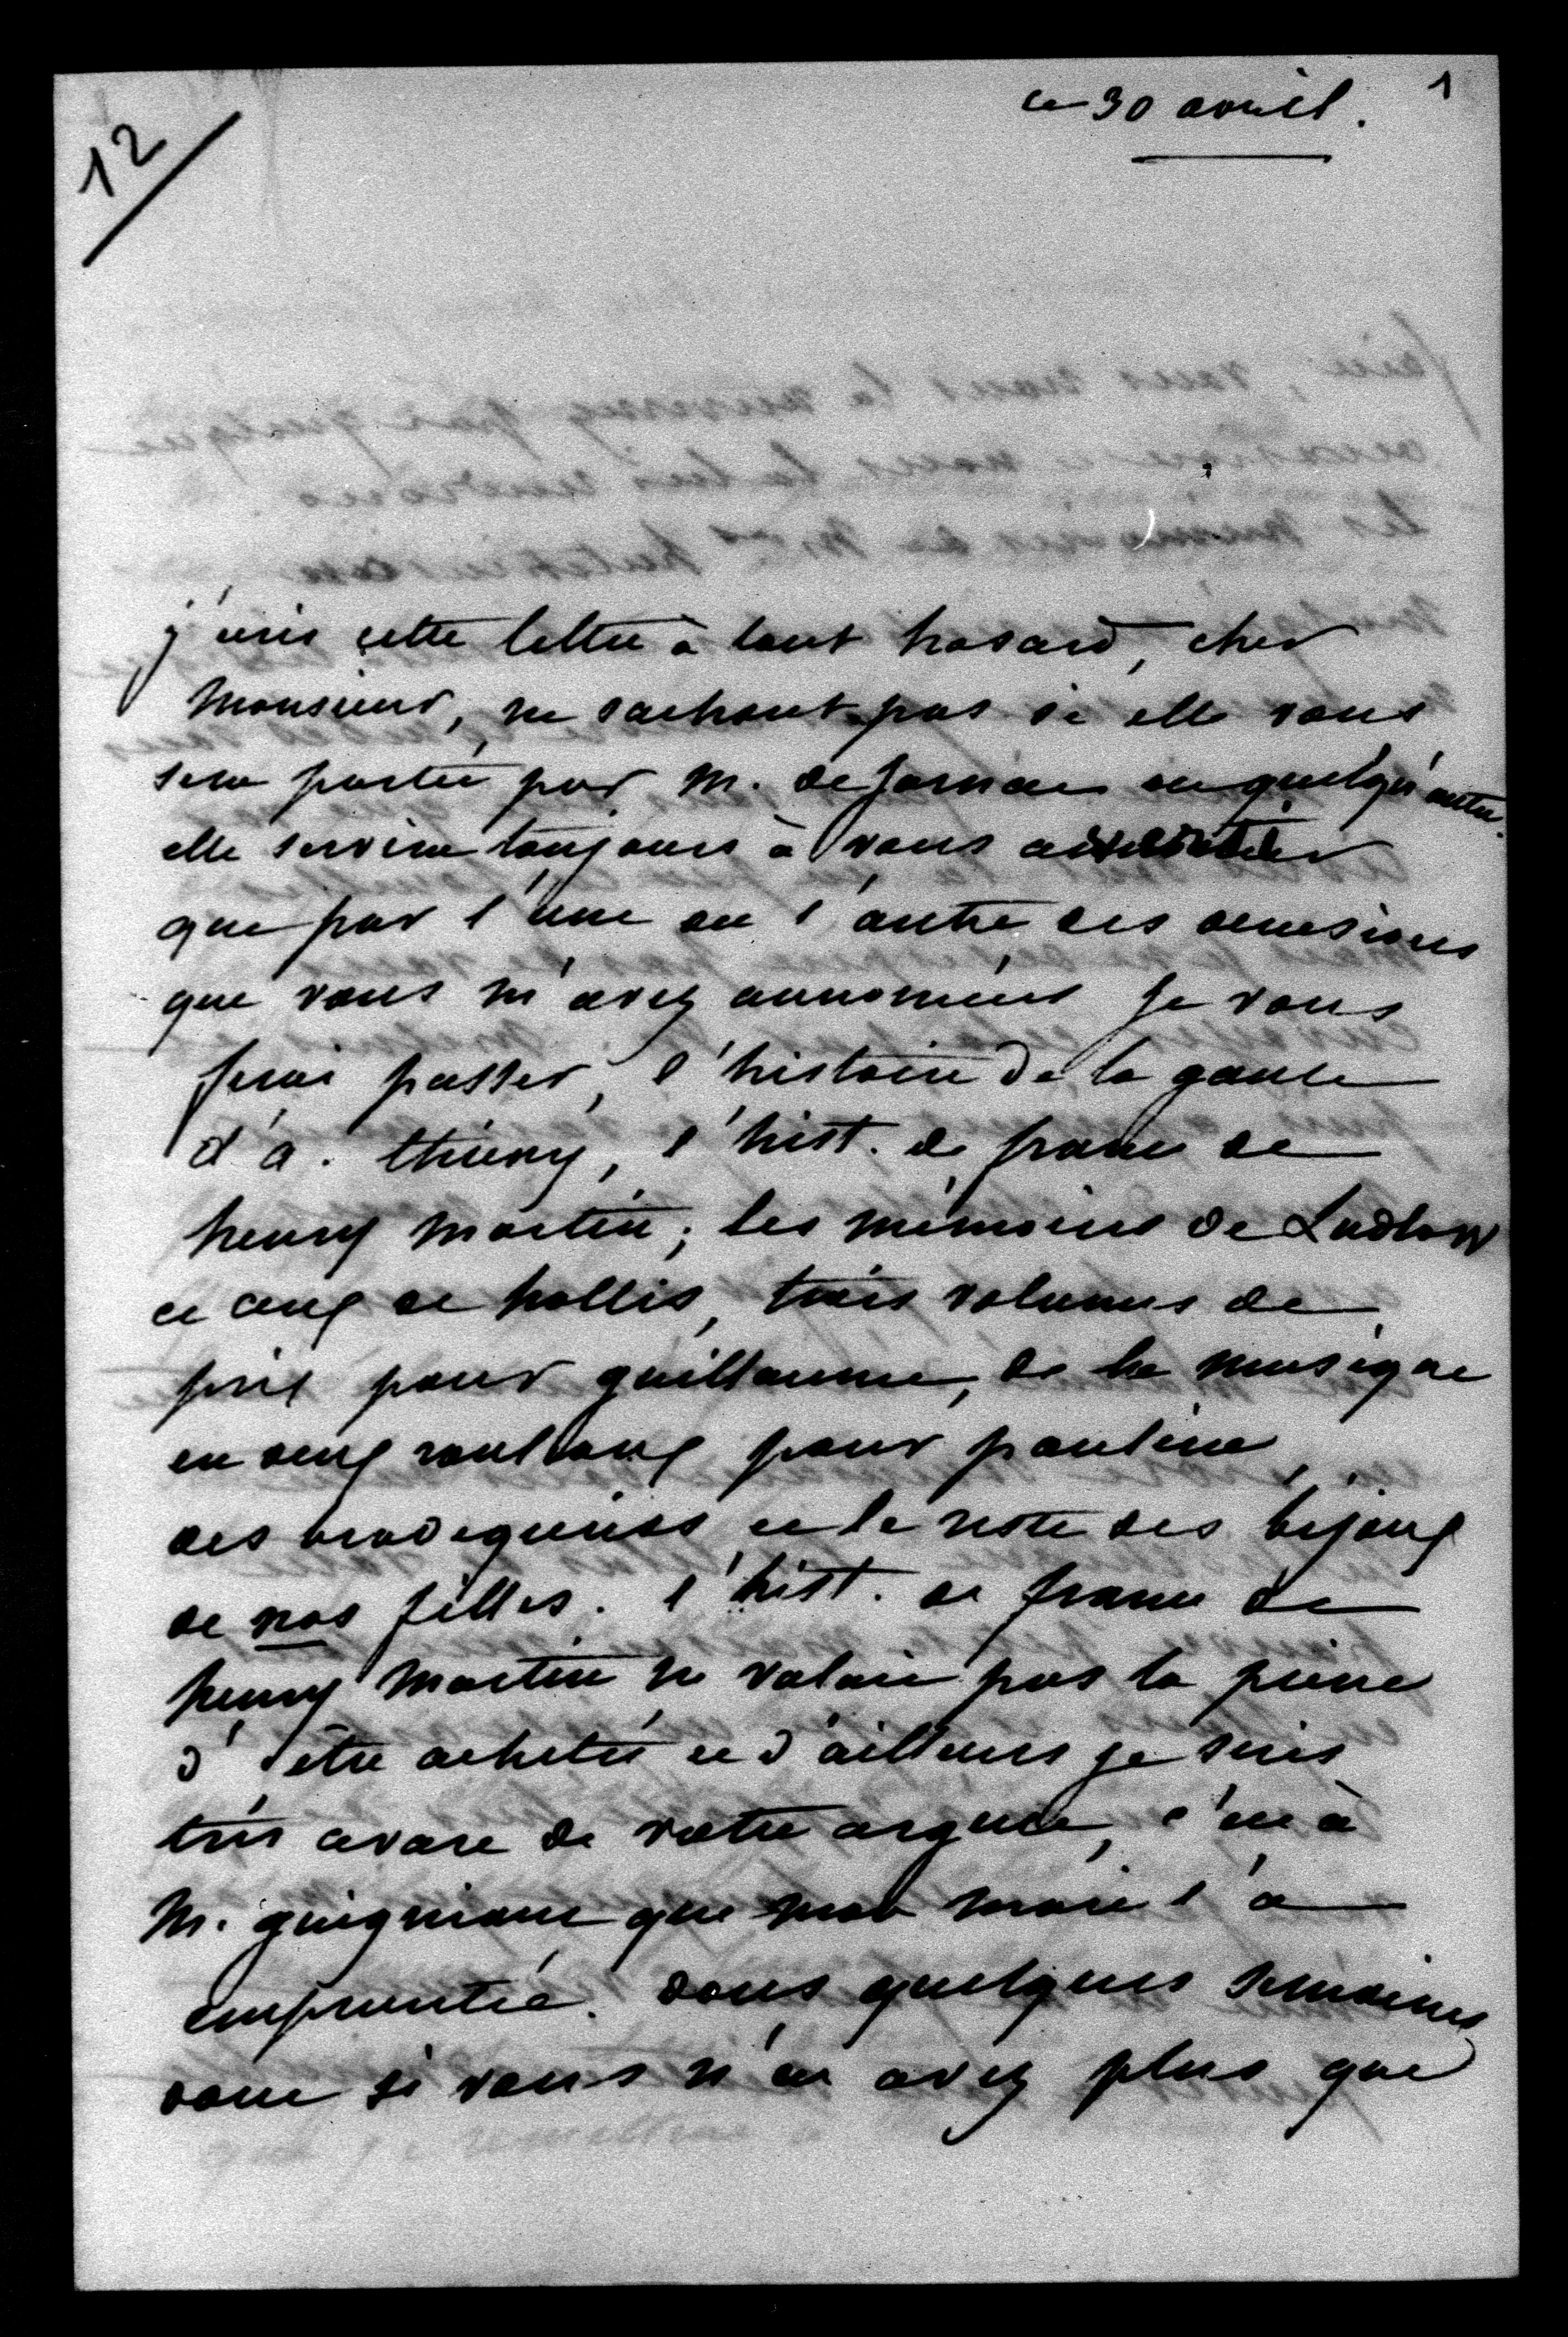 1
ce 30 avril.
12
j'écris cette lettre à tout hasard, cher
Monsieur, ne sachant pas si elle vous
sera portée par M. de Jarnac ou quelqu'autre.
elle servira toujours à vous
que par l'une ou l'autre des occasions
que vous m'avez annoncées je vous
ferai passer, l'histoire de la gaule
d'a. thierry, l'hist. de france de
henry martin; les mémoires de Ludlow
et ceux de hollis, trois volumes de
prix pour guillaume, de la musique
en deux rouleaux pour pauline,
des brodequins et le reste des bijoux
de nos filles. l'hist. de france de
henry martin ne valait pas la peine
d'être achetée et d'ailleurs je suis
très avare de votre argent, c'est à
M. guigniaut que mon mari l'a
empruntée. dans quelques semaines
donc si vous n'en avez plus que